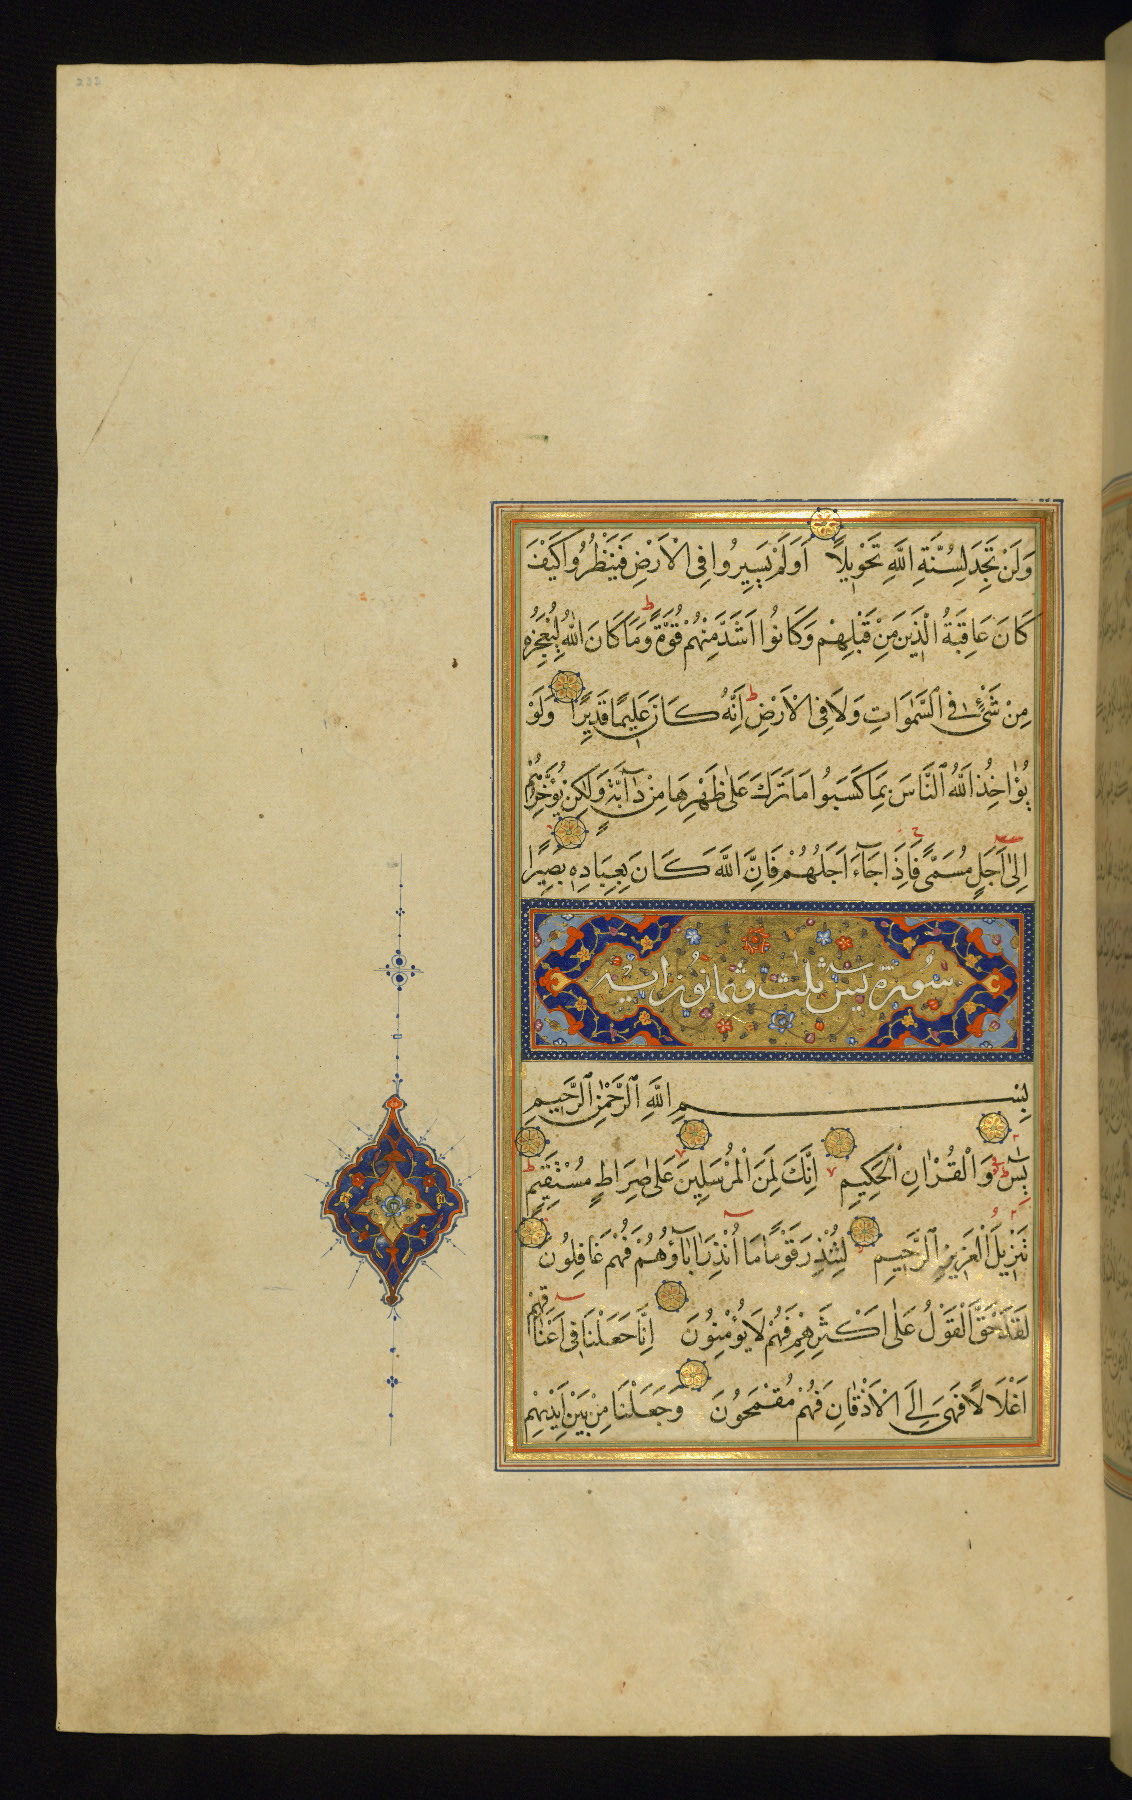 233
وَلَنْ تَجِدَ لِسُنَّةِ اللَّهِ تَحْوِيلًا اَوَلَمْ يَسِيرُوا فِى الْاَرْضِ فَيَنْظُرُوا كَيْفَ
كَانَ عَاقِبَةُ الَّذِينَ مِنْ قَبْلِهِمْ وَكَانُوا اَشَدَّ مِنْهُمْ قُوَّةً وَمَا كَانَ اللّٰهُ لِيُعْجِزَهُ
مِنْ شَىْءٍ فِى السَّمٰوَاتِ وَلَا فِى الْاَرْضِ اِنَّهُ كَانَ عَلِيمًا قَدِيرًا وَلَوْ
يُؤَاخِذُ اللَّهُ النَّاسَ بِمَا كَسَبُوا مَا تَرَكَ عَلٰى ظَهْرِهَا مِنْ دَآبَّةٍ وَلٰكِنْ يُؤَخِّرُهُمْ
اِلٰى اَجَلٍ مُسَمًّى فَاِذَا جَآءَ اَجَلُهُمْ فَاِنَّ اللَّهَ كَانَ بِعِبَادِهِ بَصِيرًا
سورة يس ثلث وثمانون اية
بِسْمِ اللَّهِ الرَّحْمٰنِ الرَّحِيمِ
يٰسٓ وَالْقُرْاٰنِ الْحَكِيمِ اِنَّكَ لَمِنَ الْمُرْسَلِينَ عَلٰى صِرَاطٍ مُسْتَقِيمٍ
تَنْزِيلَ الْعَزِيزِ الرَّحِيمِ لِتُنْذِرَ قَوْمًا مَا اُنْذِرَ اٰبَآؤُهُمْ فَهُمْ غَافِلُونَ
لَقَدْ حَقَّ الْقَوْلُ عَلٰى اَكْثَرِهِمْ فَهُمْ لَا يُؤْمِنُونَ اِنَّا جَعَلْنَا فِى اَعْنَاقِهِمْ
اَغْلَالًا فَهِىَ اِلَى الْاَذْقَانِ فَهُمْ مُقْمَحُونَ وَجَعَلْنَا مِنْ بَيْنِ اَيْدِيهِمْ